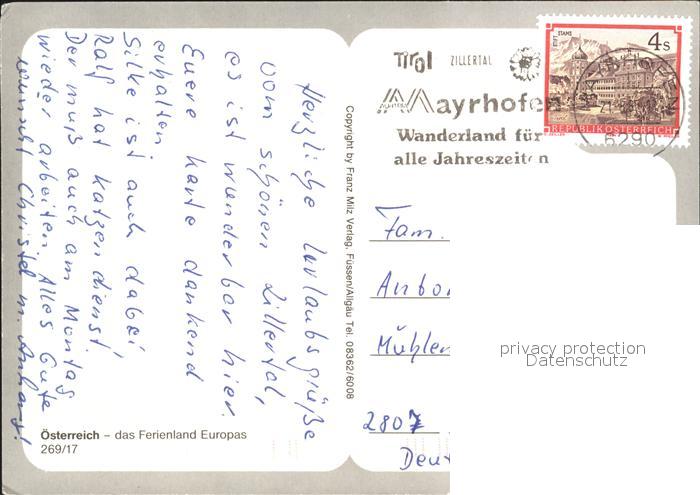 Herzliche Urlaubsgrüße
vom schönen Zillertal,
es ist wunderbar hier.
Euere Karte dankend
erhalten
Silke ist auch dabei,
Ralf hat Katzendienst,
Der muß auch am Montag
wieder arbeiten Alles Gute
wünscht Christel m. Anhang!
Österreich – das Ferienland Europas
269/17
Copyright by Franz Milz Verlag, Füssen/Allgäu Tel. 08362/6008
Tirol ZILLERTAL
Mayrhofen
Wanderland für
alle Jahreszeiten
6290
STIFT STAMS
4s
REPUBLIK ÖSTERREICH
Fam.
Anbo
Mühlen
2807
Deut
privacy protection
Datenschutz